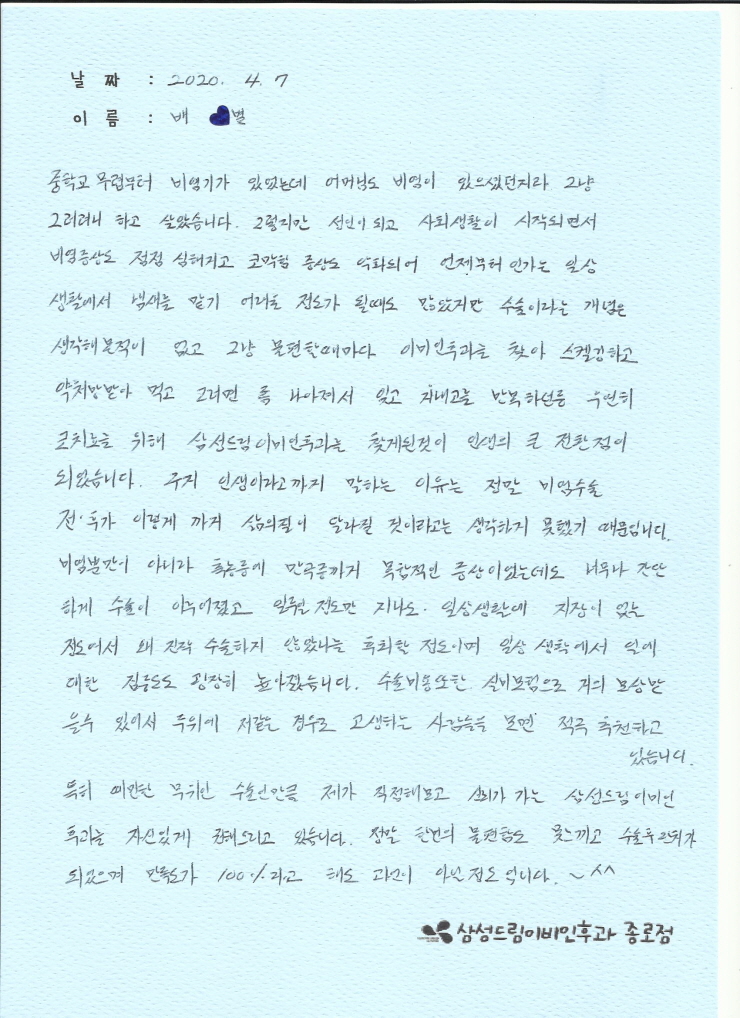 날 짜 : 2020. 4. 7
이 름 : 배 별
중학교 무렵부터 비염기가 있었는데 어머님도 비염이 있으셨던지라 그냥
그러려니 하고 살았습니다. 그렇지만 성인이 되고 사회생활이 시작되면서
비염증상도 점점 심해지고 코막힘 증상도 악화되어 언제부터인가는 일상
생활에서 냄새를 맡기 어려운 정도가 될때도 많았지만 수술이라는 개념은
생각해본적이 없고 그냥 불편할때마다 이비인후과를 찾아 스켈링하고
약처방받아 먹고 그러면 좀 나아져서 잊고 지내고를 반복하던중 우연히
코치료를 위해 삼성드림이비인후과를 찾게된것이 인생의 큰 전환점이
되었습니다. 굳이 인생이라고까지 말하는 이유는 정말 비염수술
전·후가 이렇게 까지 삶의질이 달라질 것이라고는 생각하지 못했기 때문입니다.
비염뿐만이 아니라 축농증에 만곡증까지 복합적인 증상이었는데도 너무나 간단
하게 수술이 이루어졌고 일주일 정도만 지나도 일상생활에 지장이 없는
정도여서 왜 진작 수술하지 않았나를 후회할 정도이며 일상 생활에서 일에
대한 집중도도 굉장히 높아졌습니다. 수술비용또한 실비보험으로 거의 보상받
을수 있어서 주위에 저같은 경우로 고생하는 사람들을 보면 적극 추천하고
있습니다.
특히 예민한 부위인 수술인만큼 제가 직접해보고 신뢰가 가는 삼성드림이비인
후과를 자신있게 권해드리고 있습니다. 정말 한번의 불편함도 못느끼고 수술후 완쾌가
되었으며 만족도가 100%라고 해도 과언이 아닐정도 입니다. ~ ^^
삼성드림이비인후과 종로점